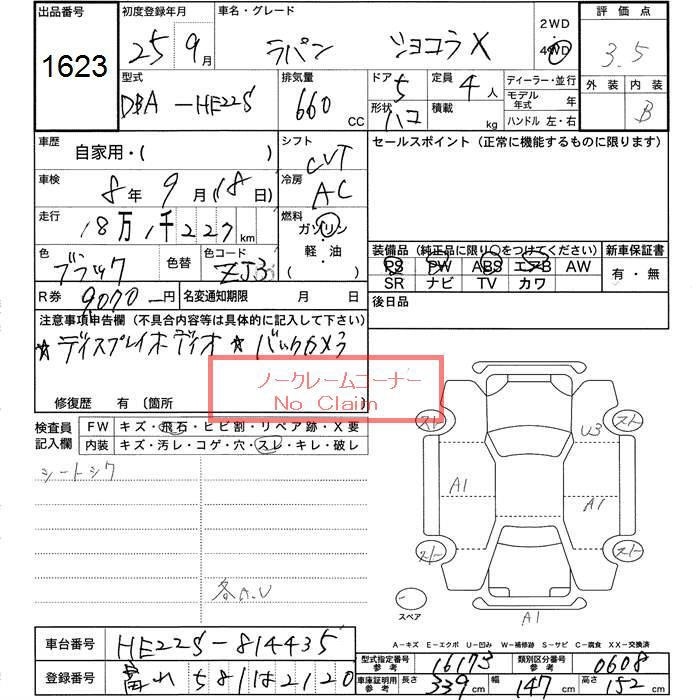 出品番号 初度登録年月 車名・グレード 2WD 評価点
1623 25年 9月 ラパン ショコラX 4WD 3.5
型式 排気量 ドア 5 定員 4人 ディーラー・並行 外装 内装
DBA-HE22S 660 CC 形状 ハコ 積載 kg モデル年式 年 B
ハンドル 左・右
車歴 自家用・( ) シフト CVT セールスポイント(正常に機能するものに限ります)
車検 8年 9月(18日) 冷房 AC
走行 18万 1千 227 km 燃料 ガソリン
色 ブラック 色替 色コード ZJ3 軽・油 ( )
装備品(純正品に限り○をつけてください) 新車保証書
PS PW ABS エアB AW 有・無
SR ナビ TV カワ
R券 9070円 名変通知期限 月 日 後日品
注意事項申告欄(不具合内容等は具体的に記入して下さい)
☆ディスプレイオーディオ ☆バックカメラ
ノークレームコーナー
No Claim
修復歴 有(箇所 )
検査員記入欄 FW キズ・飛石・ヒビ割・リペア跡・X要
内装 キズ・汚レ・コゲ・穴・スレ・キレ・破レ
シートシワ
各A.U
スト スト
U3
A1 A1
スト スト
スペア
A1
A-キズ E-エクボ U-凹み W-補修跡 S-サビ C-腐食 XX-交換済
車台番号 HE22S-814435 型式指定番号 参考 16173 類別区分番号 参考 0608
登録番号 581 は 2120 車庫証明用 参考 長さ 339cm 幅 147cm 高さ 152cm